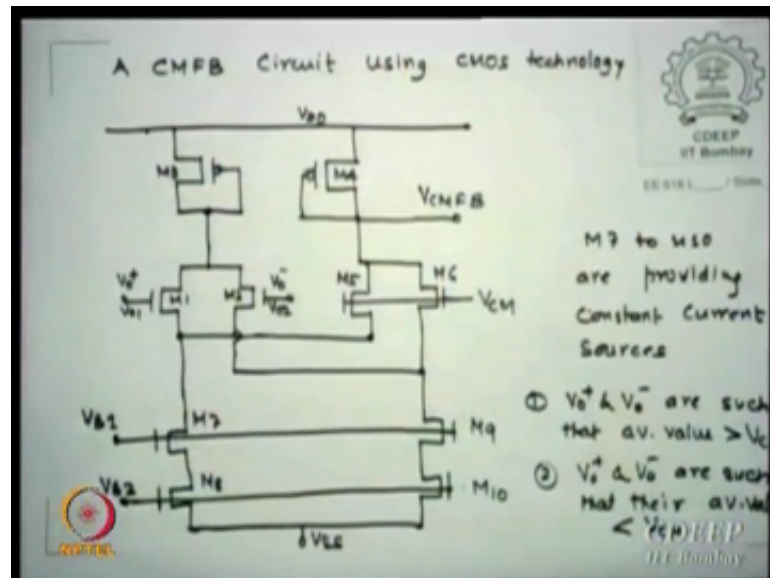 A CMFB Circuit using CMOS technology
CDEEP
IIT Bombay
EE 618 L____ / Slide
VDD
M3
M4
VCMFB
Vo+
Vo1
M1
M2
Vo-
Vo2
M5
M6
VCM
VB1
M7
M9
VB2
M8
M10
VSS
M7 to M10
are providing
Constant Current
Sources
① Vo+ & Vo- are such
that av. value > Vc
② Vo+ & Vo- are such
that their av. val
< VCM
NPTEL
CDEEP
IIT Bombay